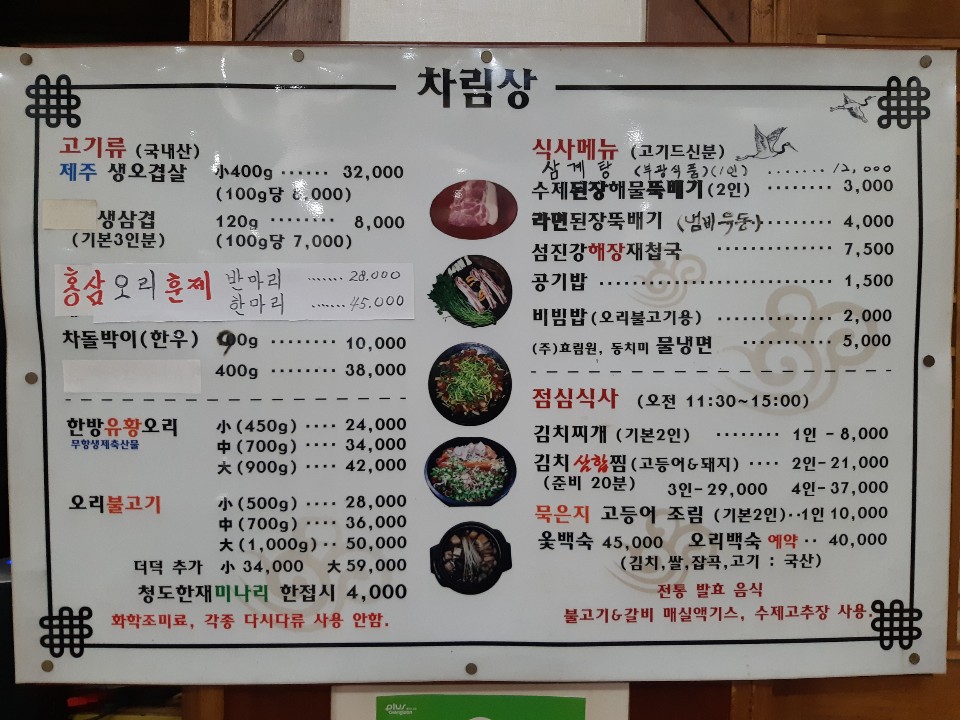 차림상
고기류 (국내산)
제주 생오겹살 小400g ······ 32,000
(100g당 8,000)
생삼겹 120g ········ 8,000
(기본3인분) (100g당 7,000)
홍삼오리훈제 반마리 ...... 28.000
한마리 ...... 45.000
차돌박이(한우) 90g ········ 10,000
400g ········ 38,000
한방유황오리 小 (450g) ···· 24,000
무항생제축산물 中 (700g) ···· 34,000
大 (900g) ···· 42,000
오리불고기 小 (500g) ···· 28,000
中 (700g) ···· 36,000
大 (1,000g) ·· 50,000
더덕 추가 小 34,000 大 59,000
청도한재미나리 한접시 4,000
화학조미료, 각종 다시다류 사용 안함.
식사메뉴 (고기드신분)
삼계탕 (부광식품)(1인) ....... 12,000
수제된장해물뚝배기 (2인) ········ 3,000
라면된장뚝배기 (냄비우동) ········ 4,000
섬진강해장재첩국 ········ 7,500
공기밥 ···················· 1,500
비빔밥 (오리불고기용) ·········· 2,000
(주)효림원, 동치미 물냉면 ········ 5,000
점심식사 (오전 11:30~15:00)
김치찌개 (기본2인) ········ 1인 - 8,000
김치삼합찜 (고등어&돼지) ···· 2인- 21,000
(준비 20분) 3인- 29,000 4인- 37,000
묵은지 고등어 조림 (기본2인)··1인 10,000
옻백숙 45,000 오리백숙 예약 ·· 40,000
(김치,쌀,잡곡,고기 : 국산)
전통 발효 음식
불고기&갈비 매실액기스, 수제고추장 사용.
plus